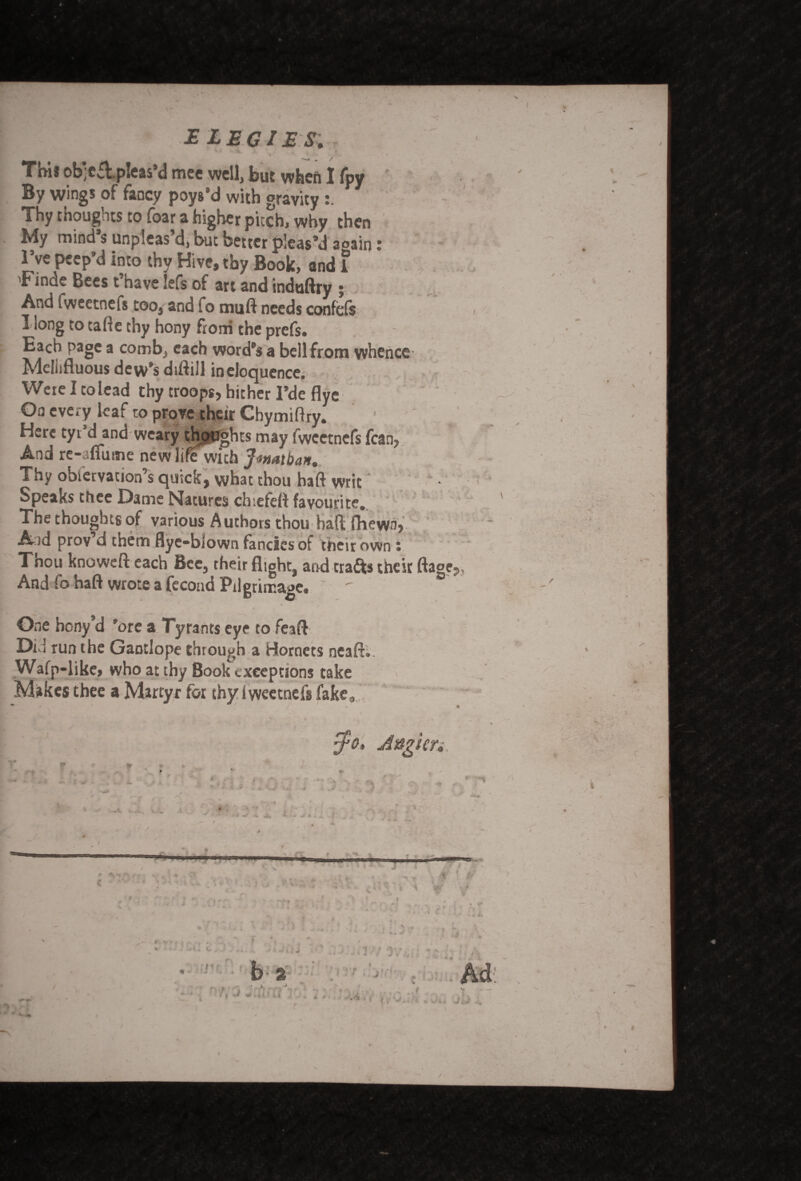 ELEGIES.
This objeƈt pleas'd mee well, but when I ſpy
By wings of fancy poys'd with gravity :
Thy thoughts to ſoar a higher pitch, why then
My mind's unpleas'd, but better pleas'd again :
I've peep'd into thy Hive, thy Book, and I
Finde Bees t'have leſs of art and induſtry ;
And ſweetneſs too, and ſo muſt needs confeſs
I long to taſte thy hony from the preſs.
Each page a comb, each word's a bell from whence
Mellifluous dew's diſtill in eloquence.
Were I to lead thy troops, hither I'de flye
On every leaf to prove their Chymiſtry.
Here tyr'd and weary thoughts may ſweetneſs ſcan,
And re-aſſume new life with Jonathan.
Thy obſervation's quick, what thou haſt writ
Speaks thee Dame Natures chiefeſt favourite.
The thoughts of various Authors thou haſt ſhewn,
And prov'd them flye-blown fancies of their own :
Thou knoweſt each Bee, their flight, and tracts their ſtage,
And ſo haſt wrote a ſecond Pilgrimage.
One hony'd 'ore a Tyrants eye to feaſt
Did run the Gantlope through a Hornets neaſt.
Waſp-like, who at thy Book exceptions take
Makes thee a Martyr for thy ſweetneſs ſake.
Jo. Angier.
b 2 Ad